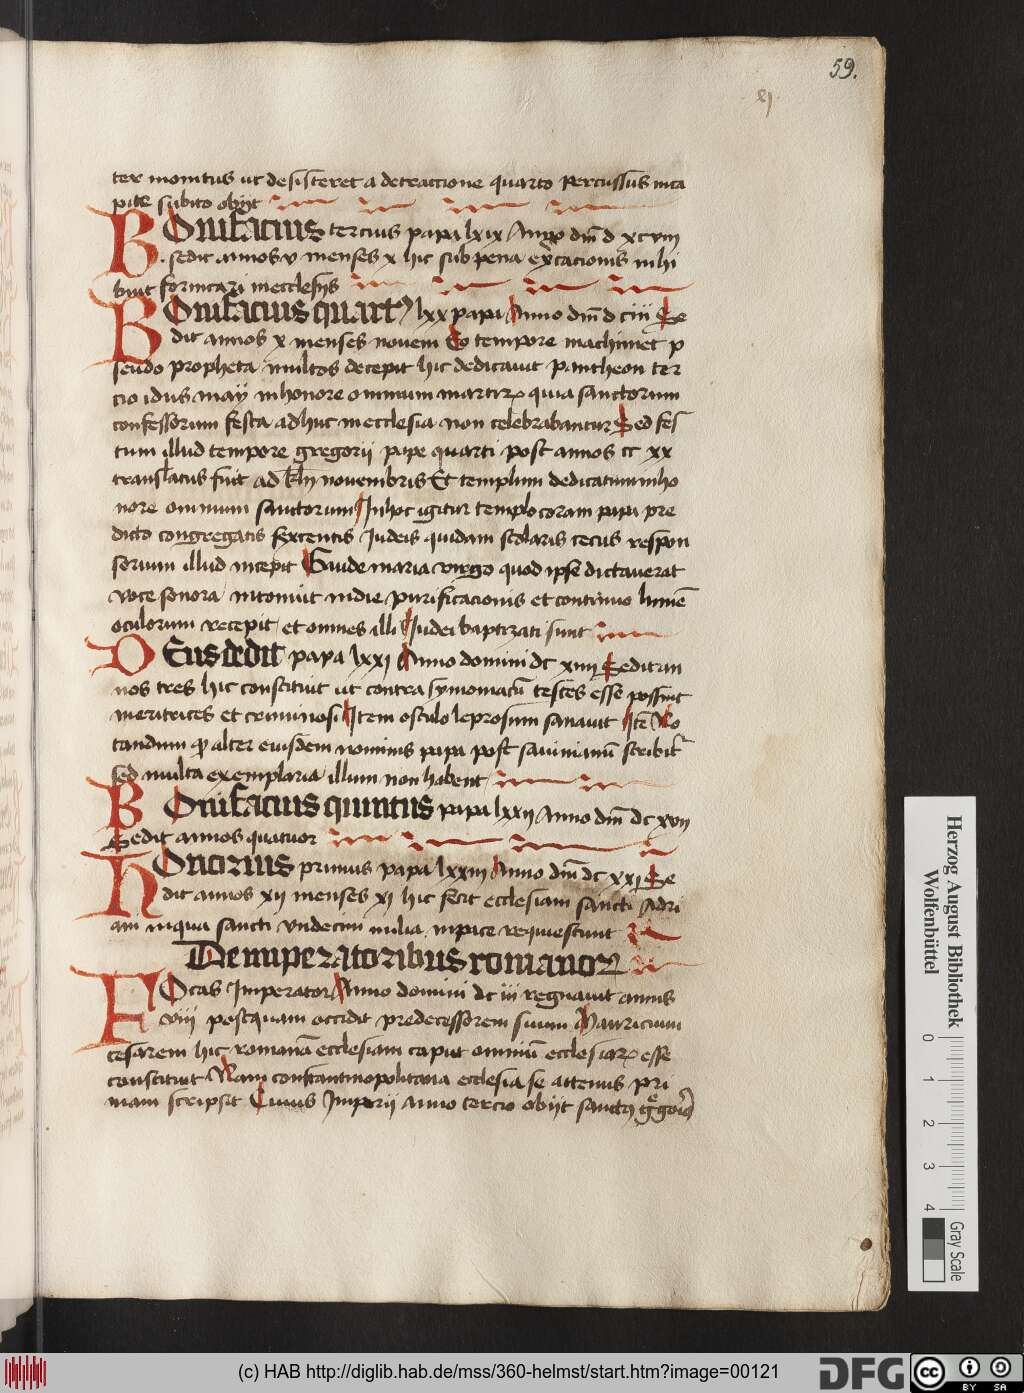 59.
ter monitus ut desisteret a detraccione quarto Percussus inca
pite subito obijt
Bonifacius tercius papa lxix Anno dm̄ d xcviij
sedit annos v menses x hic sub pena excōicacionis inhi
buit formicari inecclesijs
Bonifacius quartꝰ lxx papa Anno dm̄ d ciii Se
dit annos x menses novem Eo tempore machmet p
seudo propheta multos decepit hic dedicavit pantheon ter
cio idus may inhonore omnium martirꝝ quia sanctorum
confessorum festa adhuc inecclesia non celebrabantur Sed fes
tum illud tempore gregorii pape quarti post annos cc xx
translatus fuit ad kl̄n novembris Et templum dedicatum inho
nore omnium sanctorum Inhoc igitur templo coram papa pre
dicto congregatis sexcentis Judeis quidam scolaris cecus respon
sorium illud incepit Gaude maria virgo quod ipse dictaverat
voce sonora intonuit indie purificacionis et continuo lumē
oculorum recepit et omnes illi Judei baptizati sunt
Deusdedit papa lxxi Anno domini dc xiiij Sedit an
nos tres hic constituit ut contra symoniacū testes esse possint
meritrices et criminosi Item osculo leprosum sanavit Itē No
tandum qꝫ alter eiusdem nominis papa post savinianū scribitᷣ
sed multa exemplaria illum non habent
Bonifacius quintus papa lxxij Anno dm̄ dc xvij
Sedit annos quatuor
Honorius primus papa lxxiij Anno dm̄ dc xxi Se
dit annos xij menses xi hic fecit ecclesiam sancti Adri
ani inqua sancti undecim milia inpace requiescunt
De imperatoribus romanorꝝ
Focas Imperator Anno domini dc iii regnavit annis
viij postquam occidit predecessorem suum Mauricium
cesarem hic romanā ecclesiam caput omniū ecclesiarꝝ esse
constituit Nam constantinopolitana ecclesia se attenus pri
mam scripsit Cuius Imperii anno tercio obijt sanctus
Herzog August Bibliothek
Wolfenbüttel
0 1 2 3 4
Gray Scale
(c) HAB http://diglib.hab.de/mss/360-helmst/start.htm?image=00121
DFG
cc BY SA